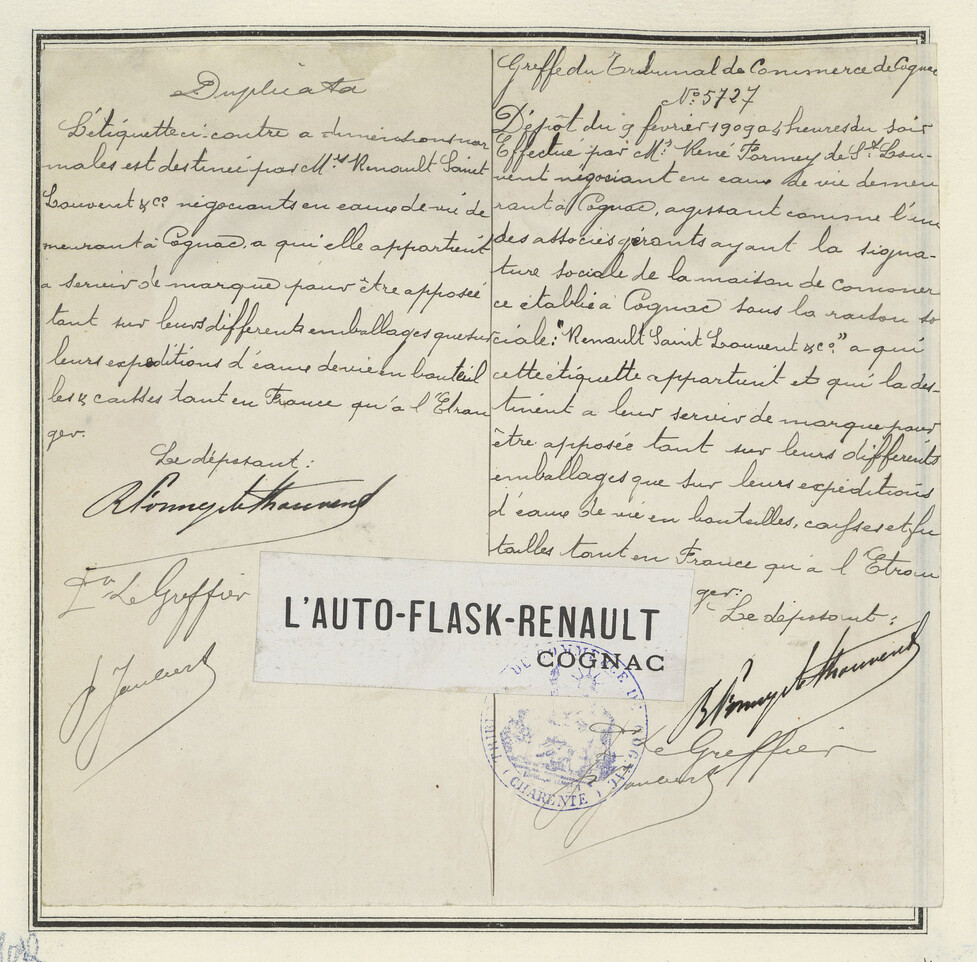 Duplicata
L'étiquette ci-contre a dimensions nor
males est destinée par Mrs Renault Saint
Louvent & Co négociants en eaux de vie de
meurant à Cognac, a qui elle appartient
a servir de marque pour être apposée
tant sur leurs differents emballages que sur
leurs expeditions d'eaux de vie en bouteil
les & caisses tant en France qu'à l'Etran
ger.
Le déposant:
Pr Le Greffier
Greffe du Tribunal de Commerce de Cognac
No 5727
Dépôt du 9 fevrier 1909 a 4 heures du soir
Effectué par Mr René Formey de St Lou-
vent négociant en eaux de vie demeu
rant à Cognac, agissant comme l'un
des associés gérants ayant la signa-
ture sociale de la maison de commer
ce établie à Cognac sous la raison so
ciale: "Renault Saint Louvent & Co" a qui
cette étiquette appartient et qui la des-
tinent a leur servir de marque pour
être apposée tant sur leurs différents
emballages que sur leurs expéditions
d'eaux de vie en bouteilles, caisses et fu
tailles tant en France qu'à l'Etran
ger:
Le déposant:
Le Greffier
L'AUTO-FLASK-RENAULT
COGNAC
TRIBUNAL DE COMMERCE DE COGNAC
(CHARENTE)